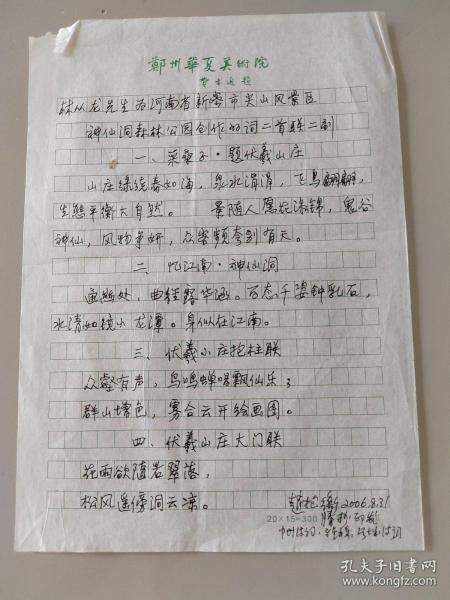 鄭州華夏美術院
林从龙先生为河南省新密市尖山风景区
神仙洞森林公园创作的词二首联二副
一、采桑子·题伏羲山庄
山庄绿绕春如海，泉水涓涓，飞鸟翩翩，
生态平衡大自然。 景随人愿花添锦，鬼谷
神仙，风物争妍，众客频夸别有天。
二、忆江南·神仙洞
通幽处，曲径露华涵。万态千姿钟乳石，
水清如镜小龙潭。身似在江南。
三、伏羲小庄抱柱联
众壑有声，鸟鸣蝉唱飘仙乐；
群山增色，雾合云开绘画图。
四、伏羲山庄大门联
花雨欲随岩翠落，
松风遥傍洞云凉。
2006.8.31
20×15=300
孔夫子旧书网